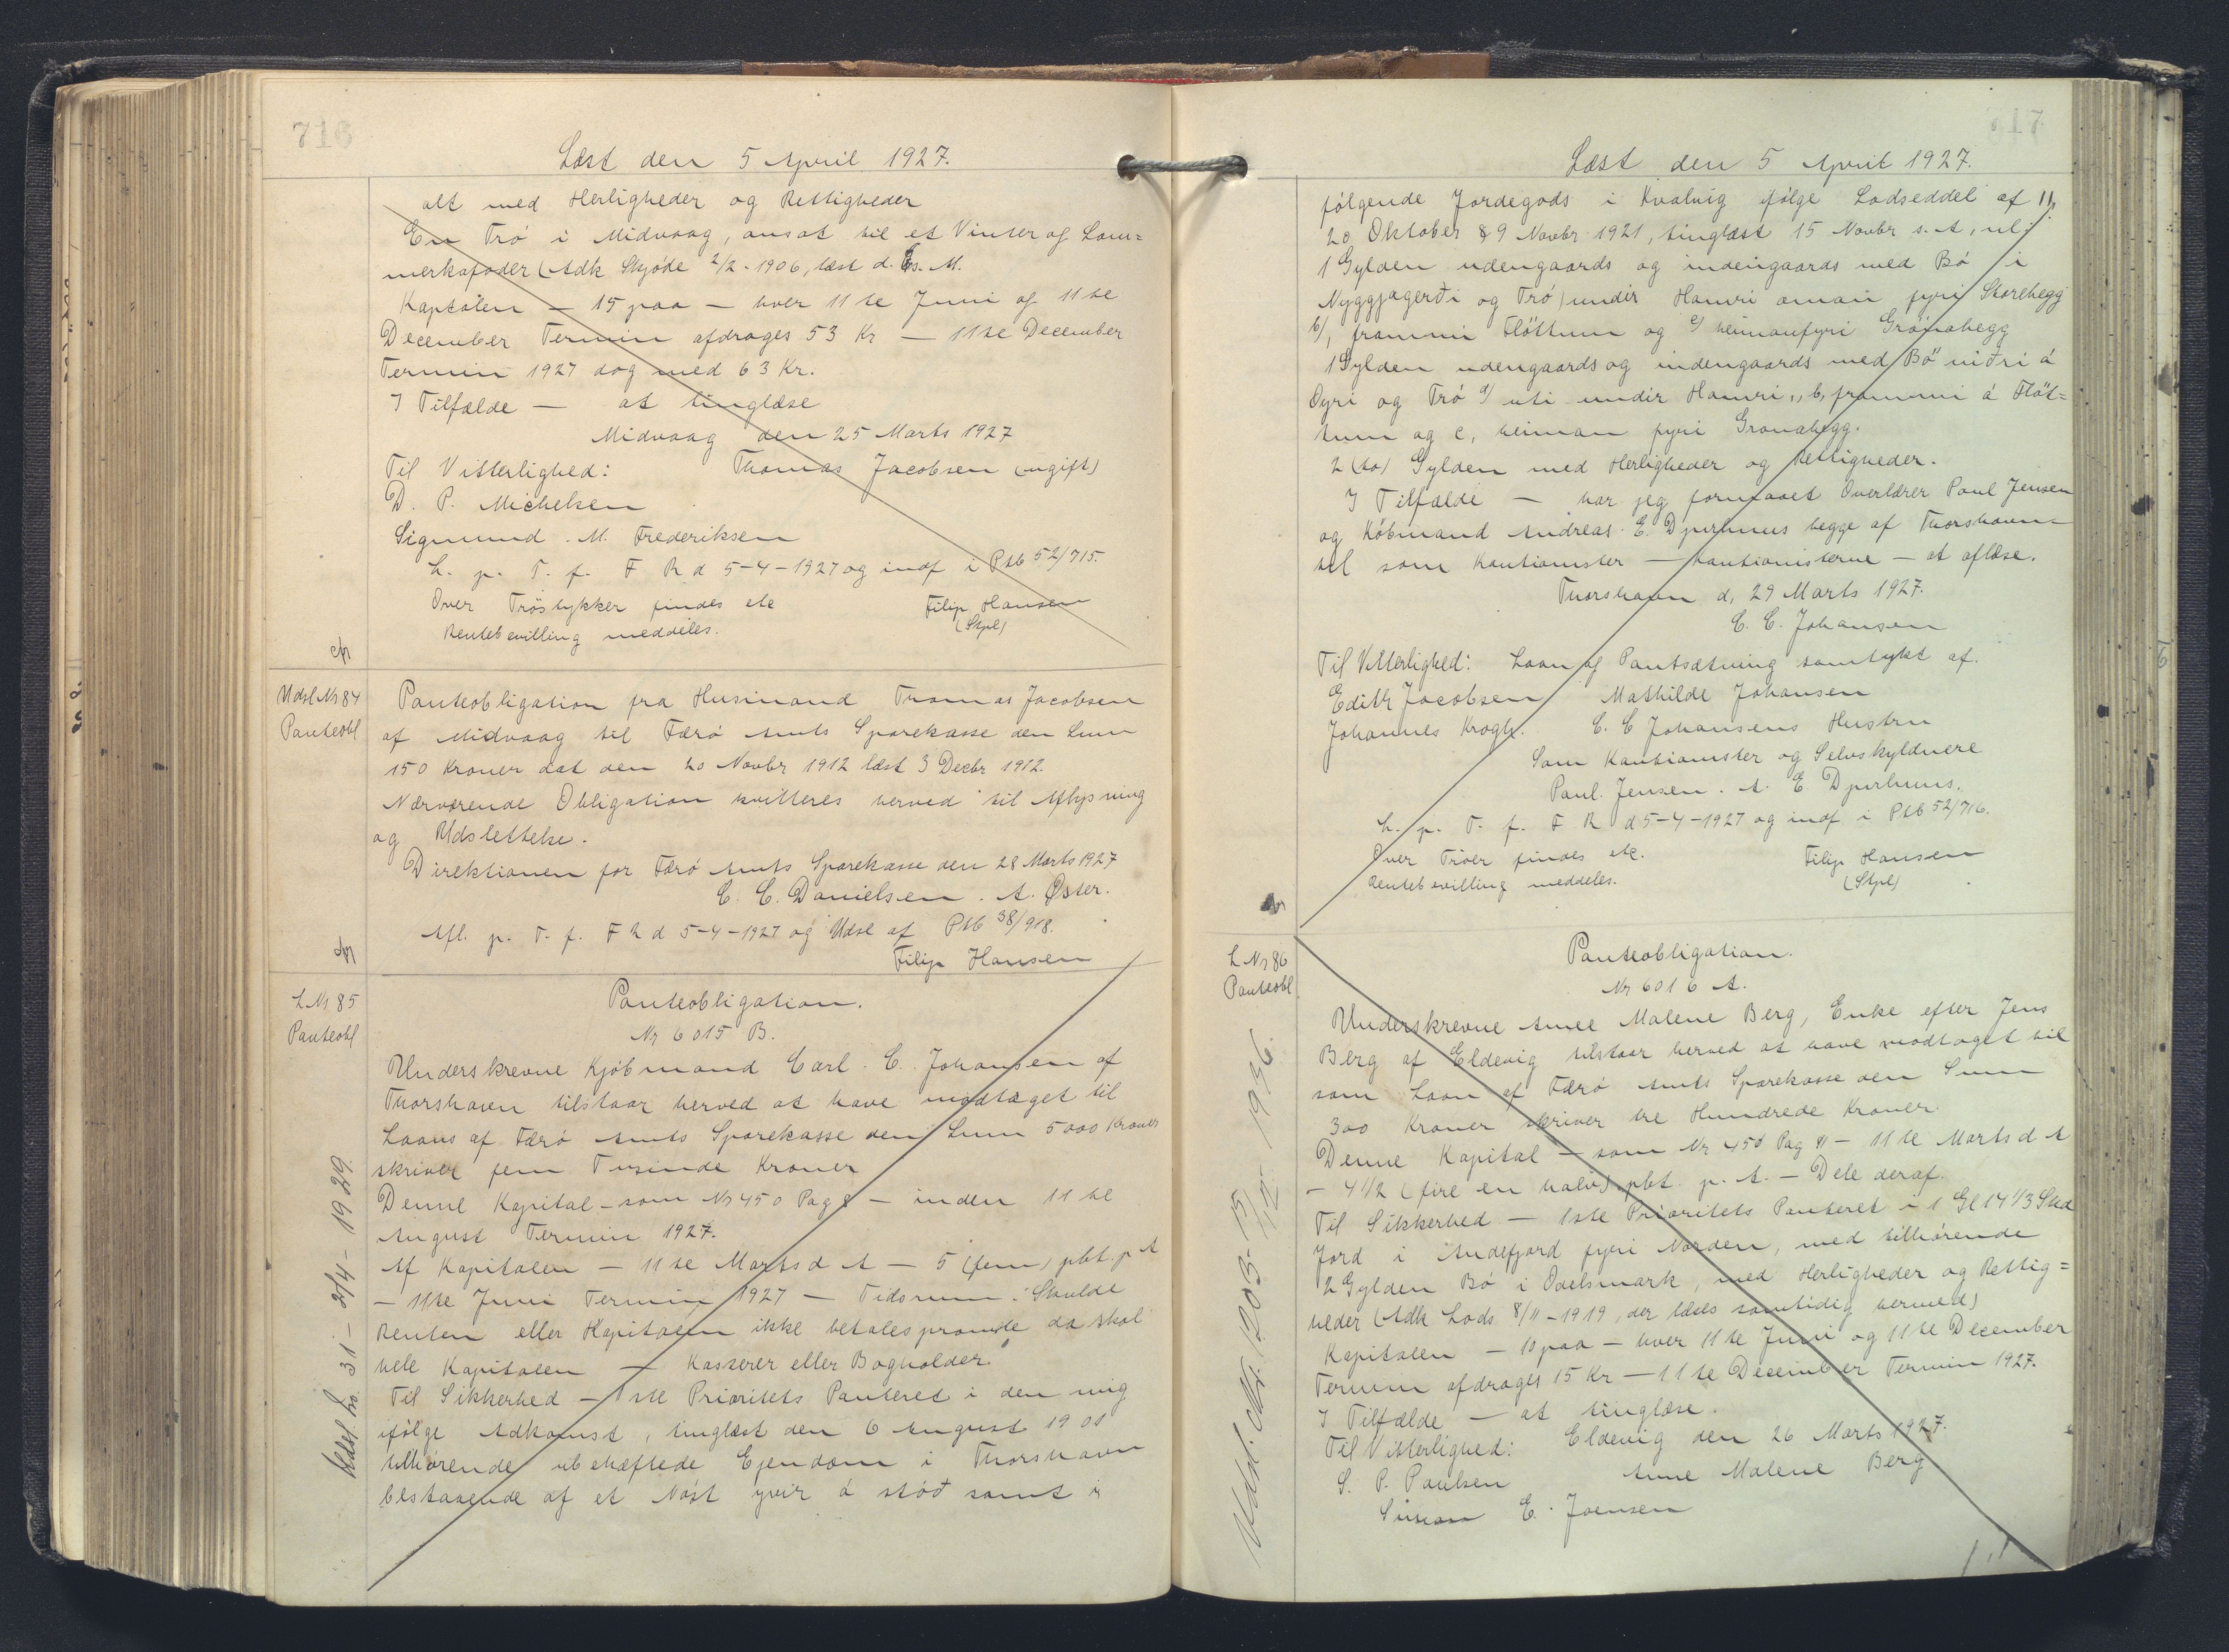 716
Læst den 5 April 1927.
alt med Herligheder og Rettigheder
En Trø i Midvaag, ansat til et Vinter og Som=
merkofoder (Adk Skjøde 2/2-1906, læst d. Es. M.
Kaptalen - 15 paa - hver 11te Juni og 11te
December Termin afdrages 53 Kr - 11te December
Termin 1927 dog med 63 Kr.
I Tilfælde - at tinglæse
Midvaag den 25 Marts 1927
Til Vitterlighed: Thomas Jacobsen (ugift)
D. P. Michelsen
Sigmund M. Frederiksen
L. p. T. f. F R d 5-4-1927 og indf i Ptb 52/715.
Over Trøstykker findes ete Filip Hansen
Rentebevilling meddeles. (Stpl)
Udsl Nr 84
Panteobl
Panteobligation fra Husmand Thomas Jacobsen
af Midvaag til Færø Amts Sparekasse den Sum
150 Kroner dat den 20 Novbr 1912 læst 3 Decbr 1912.
Nærværende Obligation kvitteres herved til Aflysning
og Udslettelse.
Direktionen for Færø Amts Sparekasse den 28 Marts 1927
C. C. Danielsen. A. Øster.
Afl. p. T. f. F R d 5-4-1927 og Udsl af Ptb 38/918.
Filip Hansen
L Nr 85
Panteobl
Panteobligation.
Nr 6015 B.
Underskrevne Kjøbmand Carl. C. Johansen af
Thorshavn tilstaar herved at have modtaget til
Laans af Færø Amts Sparekasse den Sum 5000 Kroner
skriver fem Tusinde Kroner
Denne Kapital - som Nr 450 Pag 8 - inden 11te
August Termin 1927.
Af Kapitalen - 11te Marts d A - 5 (fem) pbt. p A
- 11te Juni Termin 1927 - Tidsrum. Skulde
Renten eller Kapitalen ikke betales promte da skal
hele Kapitalen - Kasserer eller Bogholder.
Til Sikkerhed - 1ste Prioritets Panteret i den mig
ifølge Adkomst, tinglæst den 6 August 1901
tilhørende ubehæftede Ejendom i Thorshavn
bestaaende af et Nøst yvir á støð samt i
Udsl Nr. 31 - 2/4 - 1929.
717
Læst den 5 April 1927.
følgende Jordegods i Kvalvig ifølge Lodseddel af 11,
20 Oktober & 9 Novbr 1921, tinglæst 15 Novbr s. A, nl:
1 Gylden udengaards og indengaards med Bø i
Nyggjagerði og Trø) undir Hamri aman fyri Storehegg
b), frammi Fløttum og c) heimanfyri Grønahegg
1 Gylden udengaards og indengaards med Bø niðri á
Oyri og Trø a) uti undir Hamri, b, frammi á Fløt=
tum og c, heiman fyri Grønahegg.
2 (to) Gylden med Herligheder og Rettigheder.
I Tilfælde - har jeg formaaet Overlærer Poul Jensen
og Købmand Andreas E. Djurhuus begge af Thorshavn
til som Kautionister - Kautionisterne - at aflæse.
Thorshavn d, 29 Marts 1927.
C. C. Johansen
Til Vitterlighed: Laan og Pantsætning samtykt af
Edith Jacobsen Mathilde Johansen
Johannes Krogh. C. C Johansens Hustru
Som Kautionister og Selvskyldnere
Paul. Jensen. A. E. Djurhuus.
L. p. T. f. F R d 5-4-1927 og indf i Ptb 52/716.
Over Trøer findes etc. Filip Hansen
Rentebevilling meddeles. (Stpl)
L Nr 86
Panteobl
Panteobligation.
Nr 6016 A.
Underskrevne Anne Malene Berg, Enke efter Jens
Berg af Eldevig tilstaar herved at have modtaget til
som Laan af Færø Amts Sparekasse den Sum
300 Kroner skriver tre Hundrede Kroner.
Denne Kapital - som Nr 450 Pag 11 - 11te Marts d A
- 4 1/2 (fire en halv) pbt. p. A. - Dele deraf.
Til Sikkerhed - 1ste Prioritets Panteret i 1 Gl 14 1/3 Skd
Jord i Andefjord fyri Norden, med tilhørende
2 Gylden Bø i Odelsmark, med Herligheder og Rettig=
heder (Adk Lods 8/11-1919, der læses samtidig hermed)
Kapitalen - 10 paa - hver 11te Juni og 11te December
Termin afdrages 15 Kr - 11te December Termin 1927.
I Tilfælde - at tinglæse.
Til Vitterlighed: Eldevig den 26 Marts 1927.
S. P. Poulsen Anne Malene Berg
Simon E. Joensen
Udsl. Nr. 1203 - 15/12 - 1936.